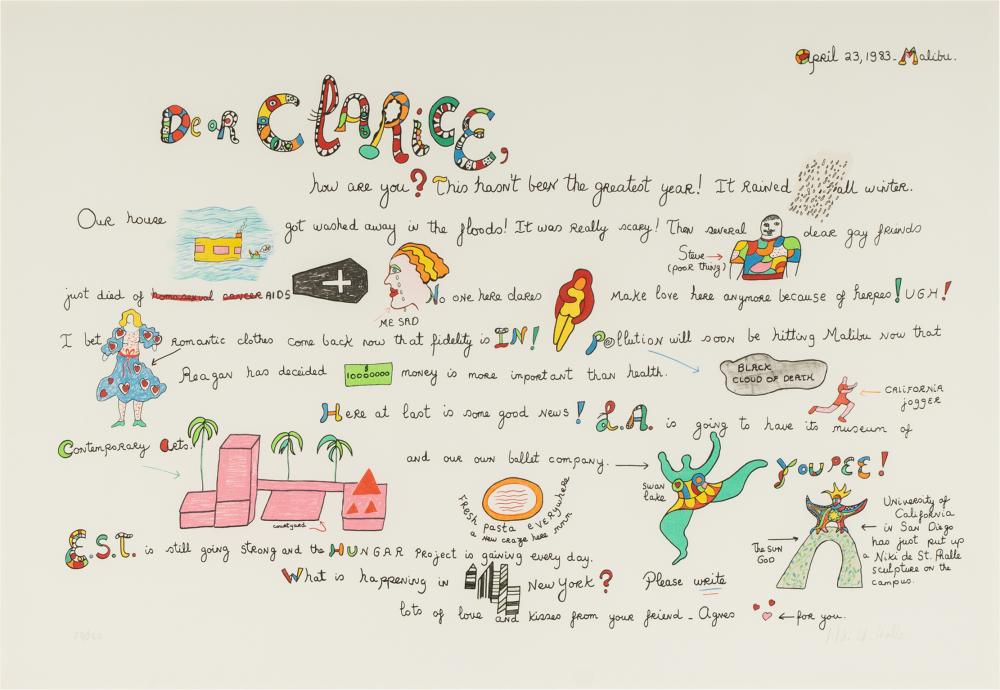 April 23, 1983 - Malibu.
Dear CLARICE,
how are you? This hasn't been the greatest year! It rained all winter.
Our house got washed away in the floods! It was really scary! Then several dear gay friends
Steve
(poor thing)
just died of homosexual cancer AIDS No one here dares Make love here anymore because of herpes! UGH!
ME SAD
I bet romantic clothes come back now that fidelity is IN! Pollution will soon be hitting Malibu now that
Reagan has decided money is more important than health.
$
1000000
BLACK
CLOUD OF DEATH
CALIFORNIA
jogger
Here at last is some good news! L.A. is going to have its museum of
Contemporary Arts. and our own ballet company. YOUPEE!
swan
lake
courtyard
FRESH pasta EVERYWHERE
a new craze here mmm
University of
California
in San Diego
has just put up
a Niki de St. Phalle
sculpture on the
campus.
The SUN
GOD
E.S.T. is still going strong and the HUNGAR Project is gaining every day.
What is happening in New York? Please write
lots of love and kisses from your friend - Agnes for you.